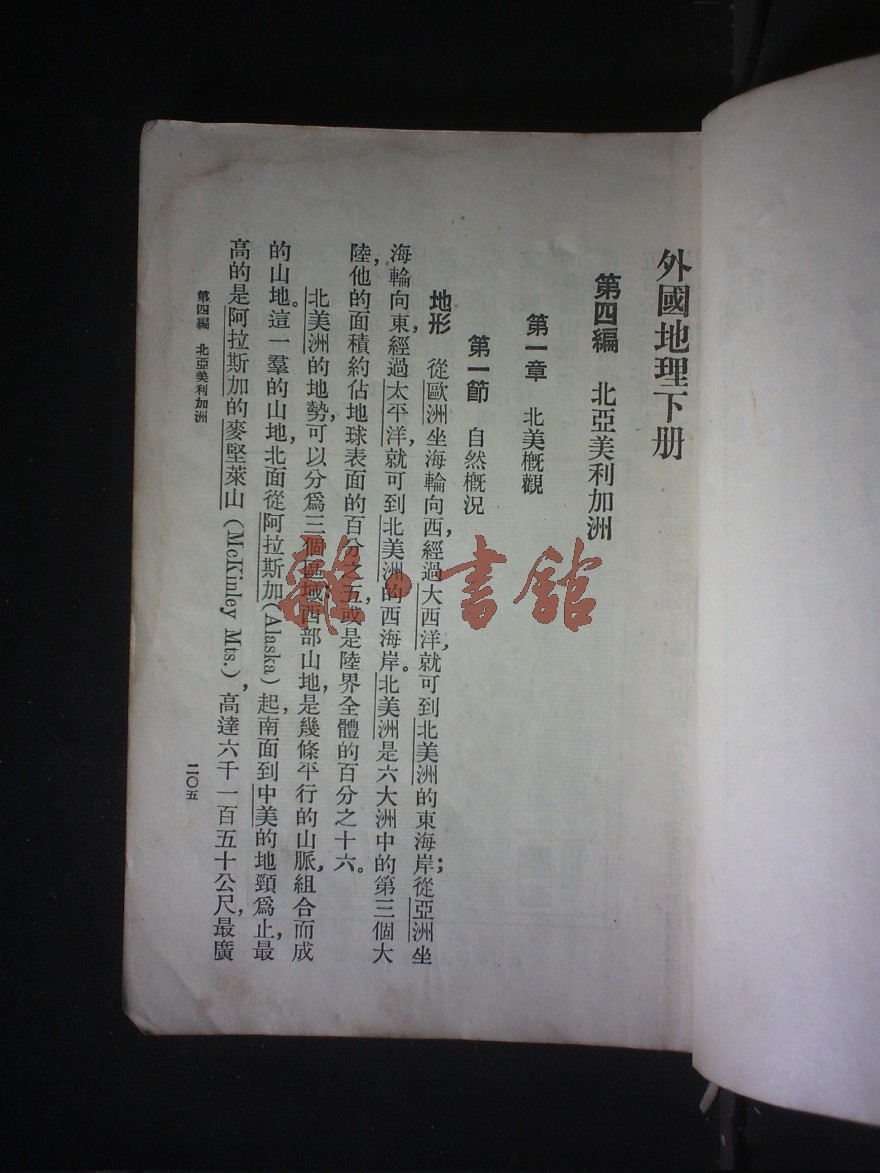 外國地理下册
第四編　北亞美利加洲
第一章　北美槪觀
第一節　自然槪況
地形　從歐洲坐海輪向西，經過大西洋，就可到北美洲的東海岸；從亞洲坐
海輪向東，經過太平洋，就可到北美洲的西海岸。北美洲是六大洲中的第三個大
陸，他的面積約佔地球表面的百分之五，或是陸界全體的百分之十六。
北美洲的地勢，可以分爲三個區域，西部山地，是幾條平行的山脈，組合而成
的山地。這一羣的山地，北面從阿拉斯加(Alaska)起，南面到中美的地頸爲止，最
高的是阿拉斯加的麥堅萊山(McKinley Mts.)，高達六千一百五十公尺，最廣
第四編　北亞美利加洲
二〇五
雜·書館